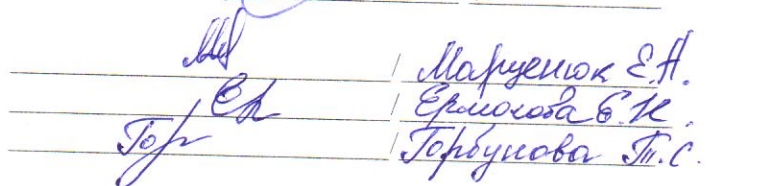 / Марценюк Е.А.
/ Ермолова Е.Н.
Гор / Горбунова Т.С.